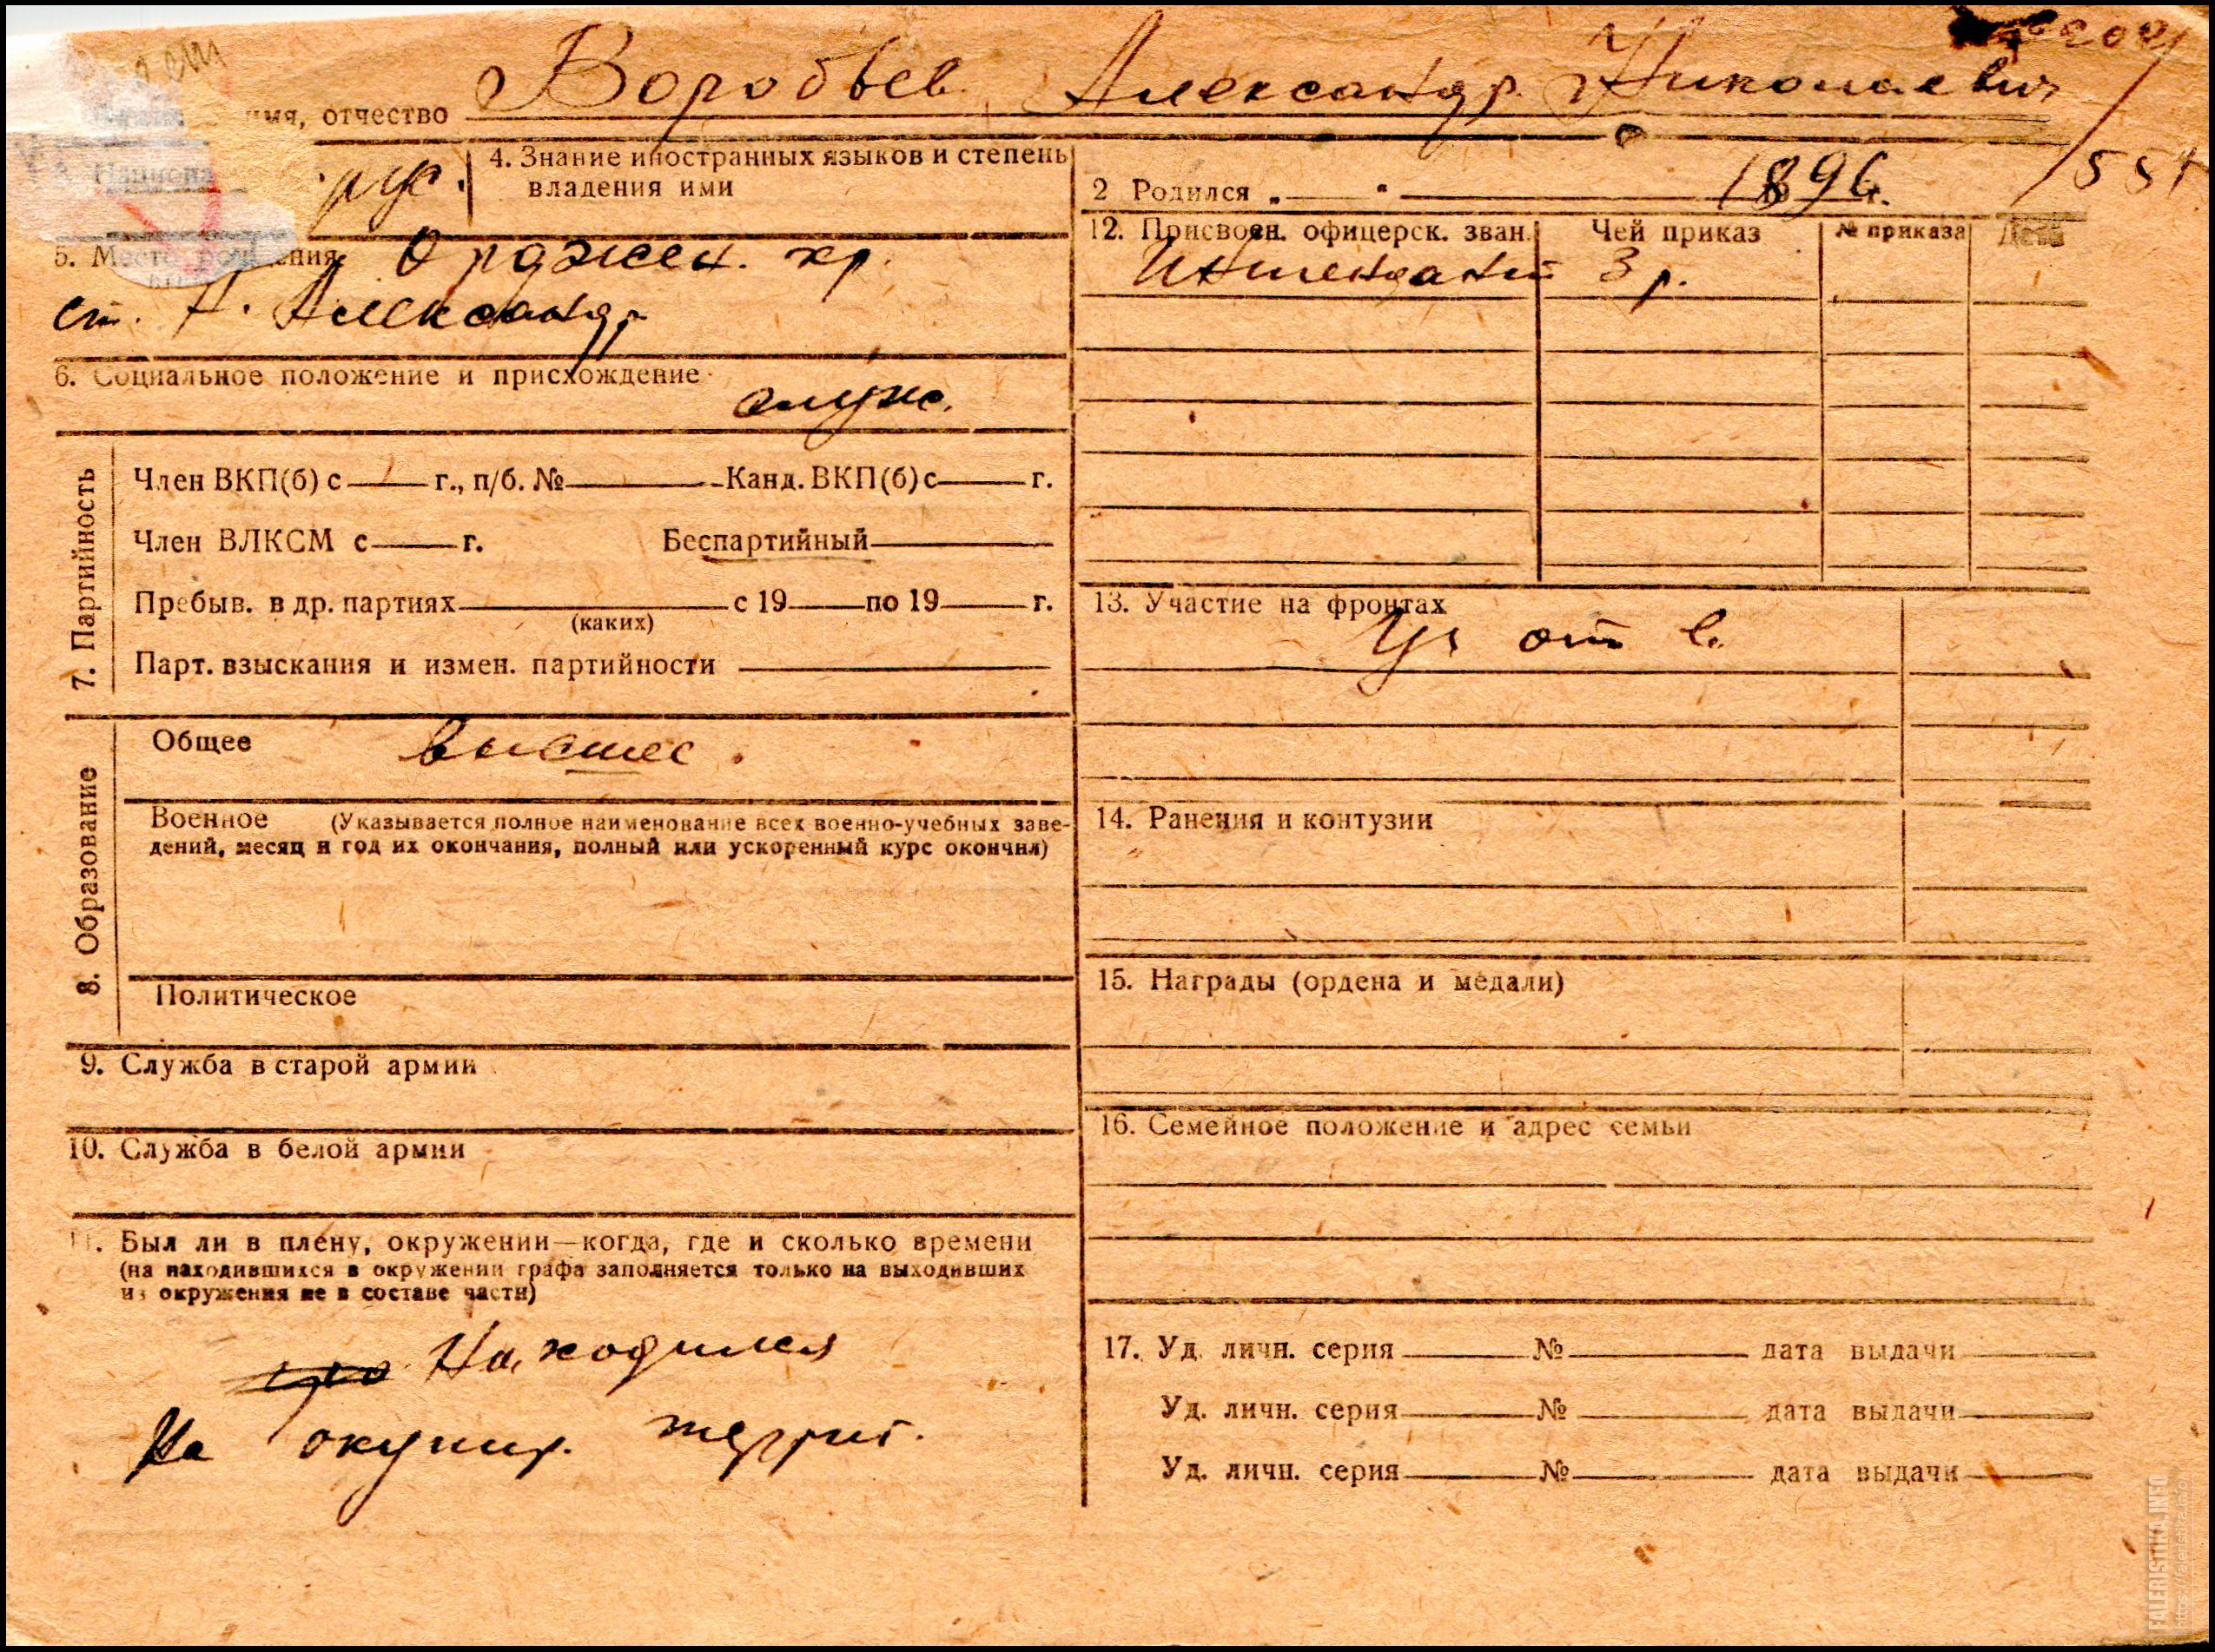 имя, отчество Воробьев Александр. Николаевич
рус. 4. Знание иностранных языков и степень
владения ими
2 Родился „ “ 1896 г. 1551
5. Место рождения Орджен. кр.
ст. А. Александр
6. Социальное положение и присхождение
служ.
7. Партийность
Член ВКП(б) с г., п/б. № Канд. ВКП(б) с г.
Член ВЛКСМ с г. Беспартийный
Пребыв. в др. партиях с 19 по 19 г.
(каких)
Парт. взыскания и измен. партийности
8. Образование
Общее высшее.
Военное (Указывается полное наименование всех военно-учебных заве-
дений, месяц и год их окончания, полный или ускоренный курс окончил)
Политическое
9. Служба в старой армии
10. Служба в белой армии
11. Был ли в плену, окружении—когда, где и сколько времени
(на находившихся в окружении графа заполняется только на выходивших
из окружения не в составе части)
Находился
на окупир. террит.
12. Присвоен. офицерск. зван. Чей приказ № приказа Дата
Интендант 3 р.
13. Участие на фронтах
Уч от в.
14. Ранения и контузии
15. Награды (ордена и медали)
16. Семейное положение и адрес семьи
17. Уд. личн. серия № дата выдачи
Уд. личн. серия № дата выдачи
Уд. личн. серия № дата выдачи
FALERISTIKA.INFO
https://faleristika.info